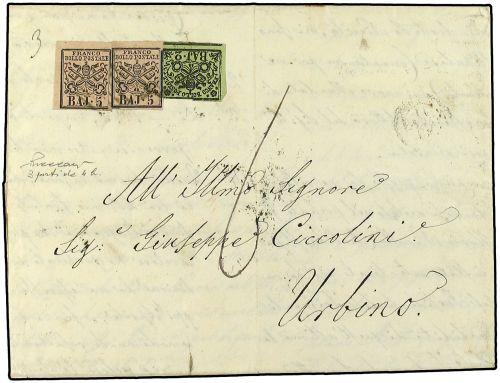 3
FRANCO
BOLLO POSTALE
BAJ. 5
FRANCO
BOLLO POSTALE
BAJ. 5
BAJ. 2
6
3 porti da 4 b.
All' Illmo Signore
Sig.r Giuseppe Ciccolini.
Urbino.